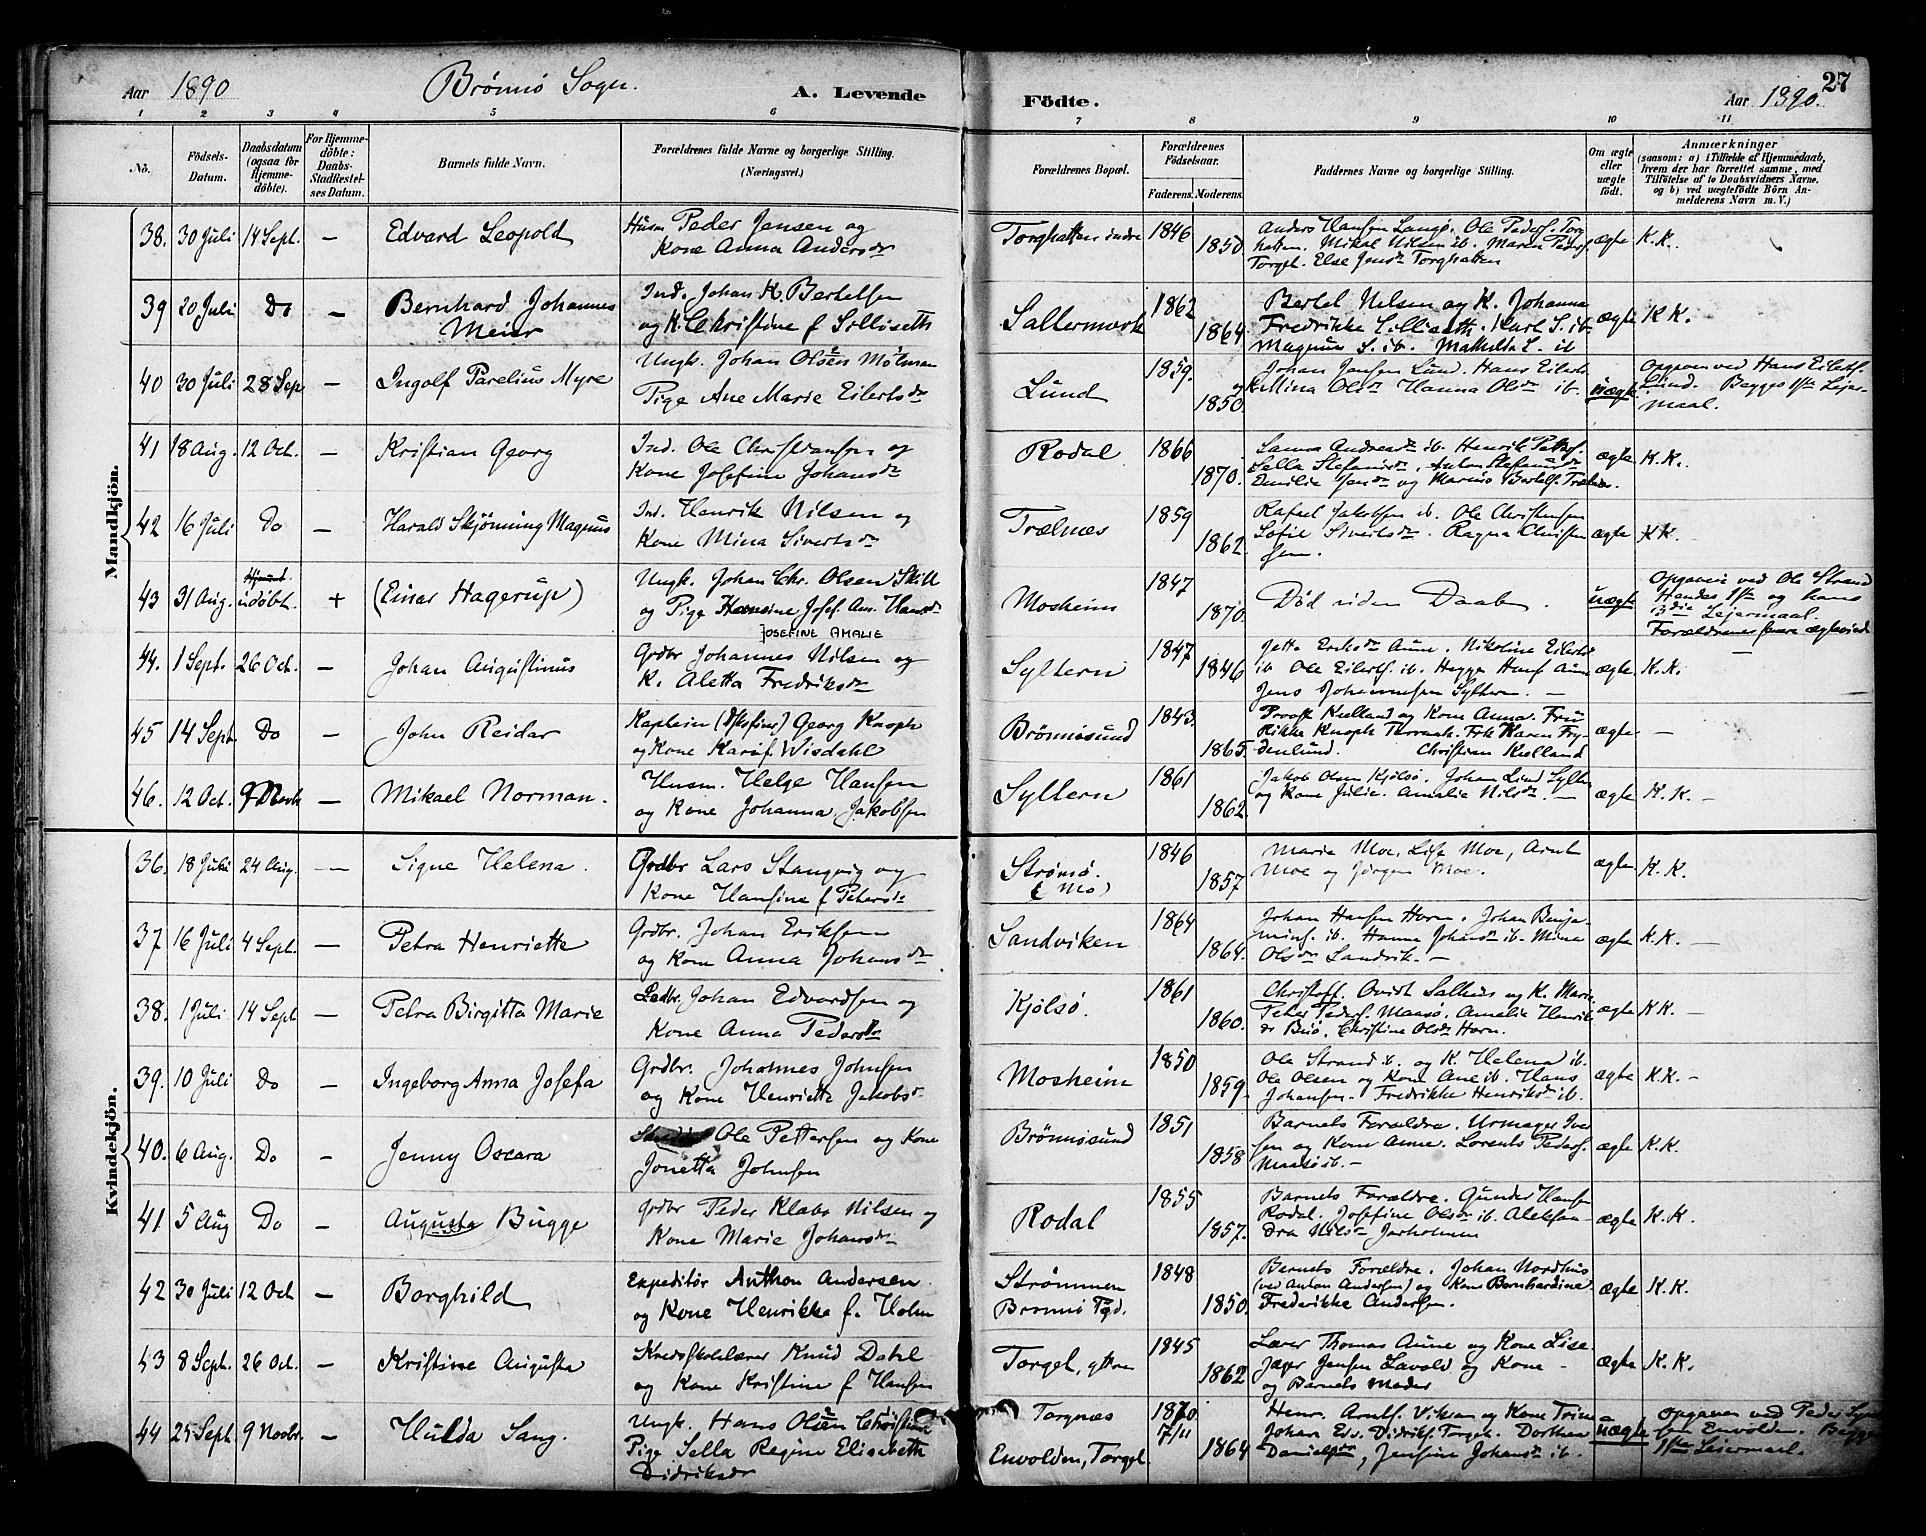 Aar 1890 Brønnø Sogn. A. Levende
Fødte. Aar 1890. 27
1 2 3 4 5 6 7 8 9 10 11
No.
Fødsels-Datum.
Daabsdatum (ogsaa for Hjemmedøbte).
For Hjemmedøbte: Daabs Stadfæstelses Datum.
Barnets fulde Navn.
Forældrenes fulde Navne og borgerlige Stilling. (Næringsvei.)
Forældrenes Bopæl.
Forældrenes Fødselsaar.
Faderens. Moderens.
Faddernes Navne og borgerlige Stilling.
Om ægte eller uægte født.
Anmærkninger
(saasom: a) i Tilfælde af Hjemmedaab, hvem der har forrettet samme, med Tilføielse af to Daabsvidners Navne, og b) ved uægtefødte Børn Anmelderens Navn m. V.)
Mandkjøn.
38. 30 Juli 14 Sept. — Edvard Leopold
Husm Peder Jensen og
Kone Anna Andersdr
Torghatten indre 1846 1850
Anders Hansen Langø. Ole Peders. Torghatten. Mikal Nilsen ib. Maren Peders. Torget. Else Jensdr Torghatten
ægte K.K.
39 20 Juli Do — Bernhard Johannes Meier
Ind. Johan K. Bertelsen
og K. Christine f Lilliseth
Saltermark 1862 1864
Bertel Nilsen og K. Johanna
Fredrikke Lilliseth. Karl L. ib.
Magnus L. ib. Mathilda L. ib
ægte K K.
40 30 Juli 28 Sep — Ingolf Parelius Myre
Ungk. Johan Olsen Mølman
Pige Ane Marie Eilertsdr
Lund 1859. 1850
Johan Jensen Lund. Hans Eilerts. og
K. Mina Olsdr Hanna Olsdr ib.
uægte
Opgaven ved Hans Eilerts.
Lund. Begges 1ste Leiermaal.
41 18 Aug. 12 Oct. — Kristian Georg
Ind. Ole Christiansen og
Kone Josefine Johansdr
Rodal 1866 1870.
ægte K.K.
42 16 Juli Do — Harald Skjønning Magnus
Ind. Henrik Nilsen og
Kone Mina Sivertsdr
Trælnæs 1859 1862.
Rafael Jakobsen ib. Ole Christensen
Sofie Sivertsdr. Ragna Christensen.
ægte K K.
43 31 Aug. udøbt. + (Einar Hagerup)
Ungk. Johan Chr. Olsen Skill
og Pige Hansine Josef. Am. Hansdr
JOSEFINE AMALIE
Mosheim 1847 1870.
Død uden Daab.
uægte
Opgaven ved Ole Strand
Hendes 1ste og hans
2die Leiermaal.
Forældrene senere ægteviede
44. 1 Sept. 26 Oct. — Johan Augustinus
Grdbr Johannes Nilsen og
K. Aletta Fredriksdr
Syltern 1847 1846
Jetta Eriksdr Aune. Nikoline Eilertsdr
ib Ole Eilerts. ib. Hans Aune
Jens Johannesen Syltern. —
ægte. K.K.
45 14 Sept Do — John Reidar
Kaptein Georg Knoph
og Kone Karof. Wisdahl
Brønnøsund 1843. 1865.
Provst Kielland og Kone Anna. Fru
Rikka Knoph Frk Karen Frydenlund. Christian Kielland
ægte. —
46. 12 Oct. 9 Novb — Mikael Norman.
Husm. Helge Hansen
og Kone Johanna Jakobsen
Syltern 1861 1862.
Jakob Olsen Kjølsø. Johan Lund Syltern
og Kone Julie. Amalie Nilsdr. —
ægte K. K. —
Kvindekjøn.
36. 18 Juli 24 Aug. — Signe Helena.
Grdbr Lars Stangvig og
Kone Hansine f Petersdr
Strømø. (Mo) 1846 1857
Maria Moe. Lise Moe, Arnt
Moe og Jørgen Moe.
ægte. K. K.
37. 16 Juli 4 Sept. — Petra Henriette
Grdbr. Johan Eriksen
og Kone Anna Johansdr
Sandviken 1864 1864.
Johan Hansen Horn. Johan Benjamins. ib. Hanna Johansdr ib. Mina
Olsdr Sandvik. —
ægte K. K. —
38. 1 Juli 14 Sept — Petra Birgitta Marie
Johan Edvardsen og
Kone Anna Pedersdr
Kjølsø. 1861 1860.
Christoff. Qvist Salhus og K. Marie.
Peter Peders. Maasø. Amalie Henriksdr Buø. Christine Olsdr Horn.
ægte K K. —
39. 10 Juli Do — Ingeborg Anna Josefa
Grdbr. Johannes Johnsen
og Kone Henriette Jakobsdr
Mosheim 1850 1859.
Ole Strand ib. og K. Helena ib.
Ole Olsen og Kone Ane ib. Hans
Johansen. Fredrikke Henriksdr ib.
ægte K.K. —
40. 6 Aug. Do — Jenny Oscara
Ole Pettersen og Kone
Jonetta Johnsen
Brønnøsund 1851 1858
Barnets Forældre. Urmager Iversen og Kone Anne. Lorents Peders.
Maasø ib. —
ægte K.K.
41 5 Aug Do — Augusta Bugge
Grdbr Peder Klabo Nilsen og
Kone Marie Johansdr
Rodal 1855 1857.
Barnets Forældre. Gunder Hansen
Rodal. Josefine Olsdr ib. Aleksandra Nilsdr Jarholmen
ægte K. K.
42 30 Juli 12 Oct — Borghild
Expeditør Anthon Andersen
og Kone Henrikke f. Holm
Strømmen Brønnø Pgd. 1848 1850
Barnets Forældre. Johan Nordhus
(ved Anton Andersen) og Kone Bernhardine.
Frederikke Andersen.
ægte K. K.
43 8 Sept. 26 Oct. — Kristine Augusta
Kredsskolelærer Knud Dahl
og Kone Kristine f Hansen
Torget, ytre 1845 1862
Lærer Thomas Aune og Kone Lise
Jæger Jensen Lavold og Kone —
og Barnets Moder
ægte K. K.
44 25 Sept 9 Novbr. — Hulda Sang.
Ungk. Hans Olsen Christine
Pige Sella Regine Elisabeth
Didriksdr
Torgnæs
Envolden, Torget 1870 7/11 1864
Henr. Arnts. Viksen og Kone Trine
Johan Edv. Didriks. Torget. Dorthea
Danielsdr, Jensine Johansdr ib.
uægte
opgaven ved Peder
Envolden. Begges
1ste Leiermaal